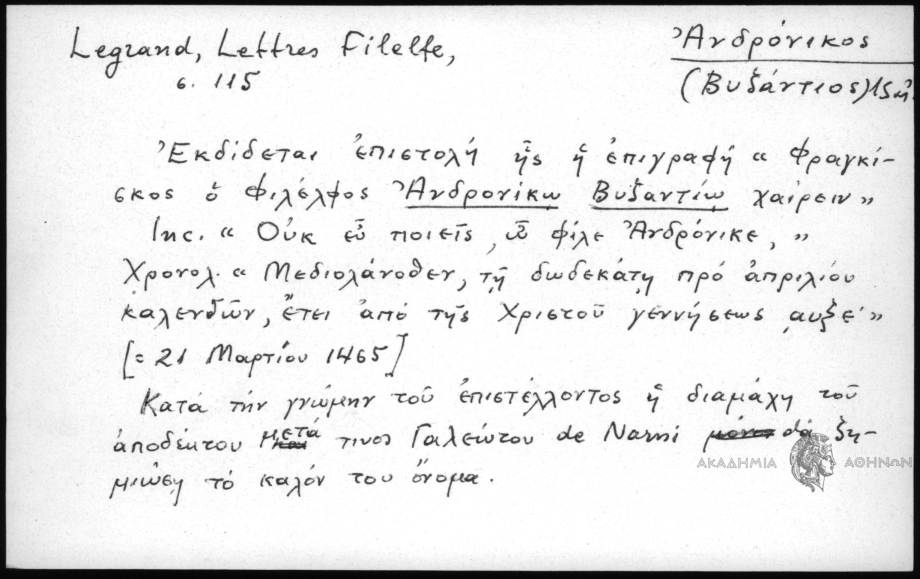 Legrand, Lettres Filelfe,
σ. 115
Ἀνδρόνικος
(Βυζάντιος)
Ἐκδίδεται ἐπιστολή ἧς ἡ ἐπιγραφή « Φραγκί-
σκος ὁ Φιλέλφος Ἀνδρονίκῳ Βυζαντίῳ χαίρειν »
Inc. « Οὐκ εὖ ποιεῖς, ὦ φίλε Ἀνδρόνικε, »
Χρονολ. « Μεδιολάνοθεν, τῇ δωδεκάτῃ πρό ἀπριλίου
καλενδῶν, ἔτει ἀπό τῆς Χριστοῦ γεννήσεως ͵αυξε΄ »
[= 21 Μαρτίου 1465]
Κατά τήν γνώμην τοῦ ἐπιστέλλοντος ἡ διαμάχη τοῦ
ἀποδέκτου μετά τινος Γαλεώτου de Narni θά ζη-
μιώσῃ τό καλόν του ὄνομα.
ΑΚΑΔΗΜΙΑ ΑΘΗΝΩΝ